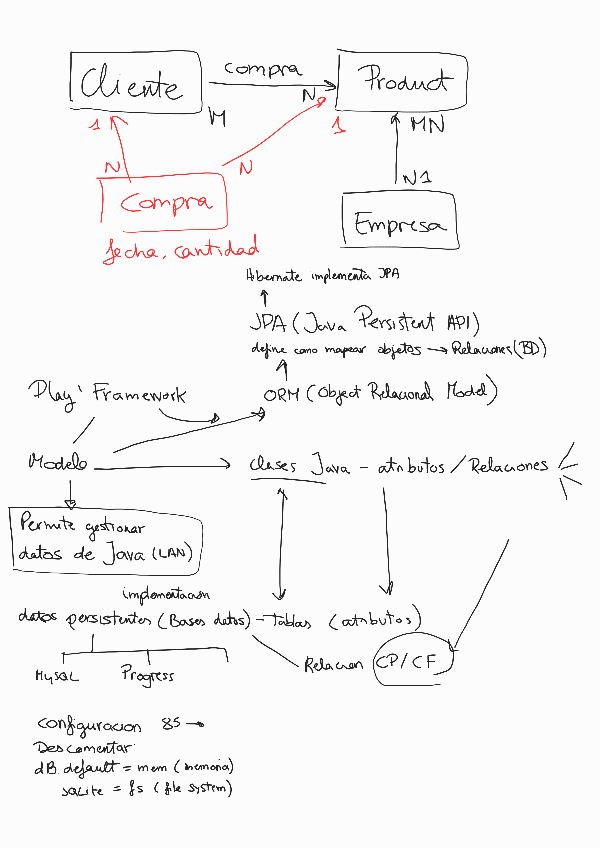 compra
Cliente
Product
M
N
1
1
MN
N
N
N1
Compra
Empresa
fecha, cantidad
Hibernate implementa JPA
JPA (Java Persistent API)
define como mapear objetos → Relaciones (BD)
Play! Framework
ORM (Object Relacional Model)
Modelo
clases Java - atributos / Relaciones
Permite gestionar
datos de Java (LAN)
implementacion
datos persistentes (Bases datos) - Tablas (atributos)
Relacion CP/CF
MySQL
Progress
Configuracion 85 →
Descomentar
dB. default = mem (memoria)
sqlite = fs (file system)